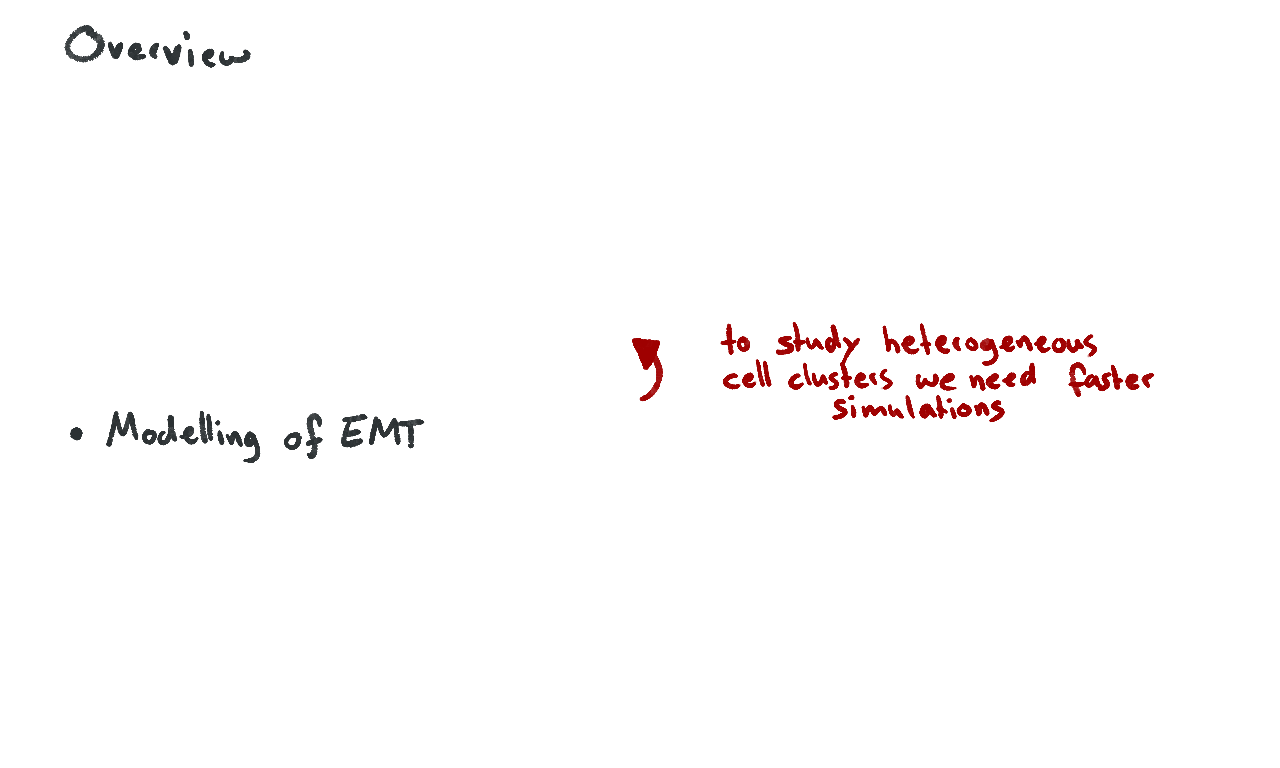 Overview
to study heterogeneous
cell clusters we need faster
simulations
• Modelling of EMT